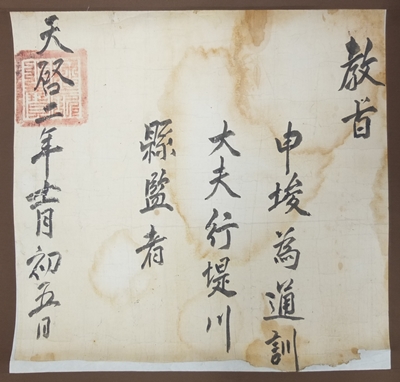 敎旨
申埈為通訓
大夫行堤川
縣監者
天啓二年十一月初五日